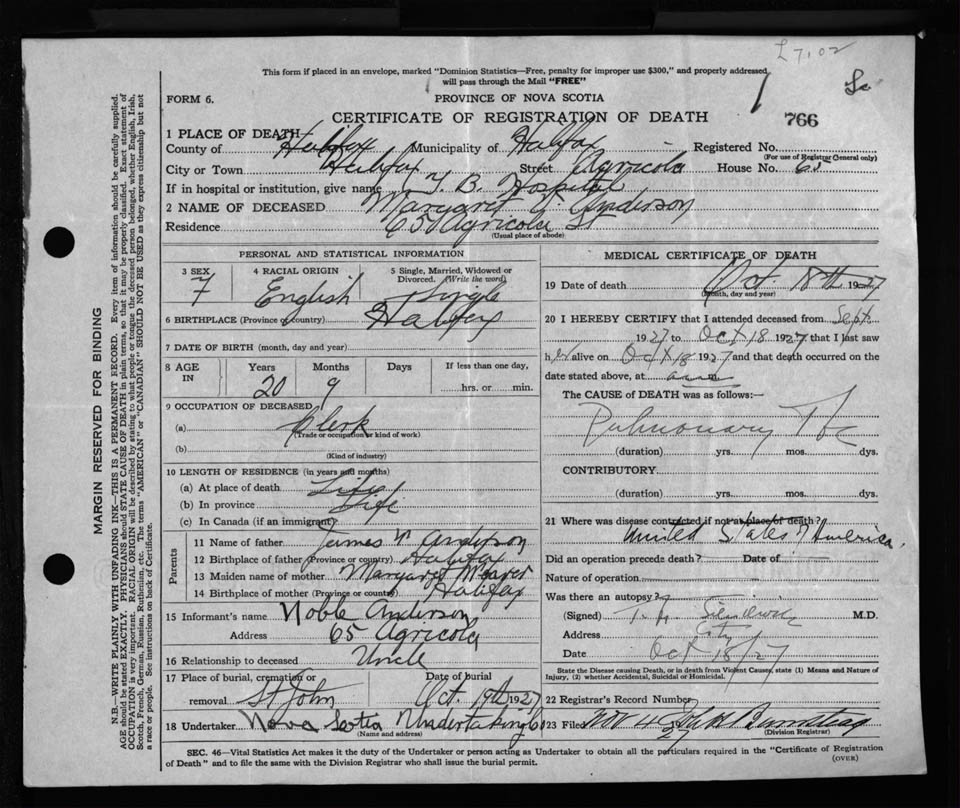 £7,02
This form if placed in an envelope, marked "Dominion Statistics—Free, penalty for improper use $300," and properly addressed, will pass through the Mail "FREE"
FORM 6.
PROVINCE OF NOVA SCOTIA
CERTIFICATE OF REGISTRATION OF DEATH
766
1 PLACE OF DEATH
County of Halifax Municipality of Halifax Registered No.
(For use of Registrar General only)
City or Town Halifax Street Agricola House No. 65
If in hospital or institution, give name T. B. Hospital
2 NAME OF DECEASED Margaret Anderson
Residence 65 Agricola St
(Usual place of abode)
PERSONAL AND STATISTICAL INFORMATION
3 SEX F
4 RACIAL ORIGIN English
5 Single, Married, Widowed or Divorced. (Write the word) Single
6 BIRTHPLACE (Province or country) Halifax
7 DATE OF BIRTH (month, day and year)
8 AGE IN Years 20 Months 9 Days If less than one day, hrs. or min.
9 OCCUPATION OF DECEASED
(a) Clerk
(Trade or occupation or kind of work)
(b)
(Kind of industry)
10 LENGTH OF RESIDENCE (in years and months)
(a) At place of death Life
(b) In province Life
(c) In Canada (if an immigrant)
Parents
11 Name of father James Anderson
12 Birthplace of father (Province or country) Halifax
13 Maiden name of mother Margaret
14 Birthplace of mother (Province or country) Halifax
15 Informant's name Noble Anderson
Address 65 Agricola
16 Relationship to deceased Uncle
17 Place of burial, cremation or removal St John Date of burial Oct. 19th 1927
18 Undertaker Nova Scotia Undertaking Co
(Name and address)
MEDICAL CERTIFICATE OF DEATH
19 Date of death Oct. 18th 1927
(Month, day and year)
20 I HEREBY CERTIFY that I attended deceased from Sept
1927 to Oct 18 1927 that I last saw
her alive on Oct 18 1927 and that death occurred on the
date stated above, at
The CAUSE of DEATH was as follows:—
Pulmonary Tbc
(duration) yrs. mos. dys.
CONTRIBUTORY.
(duration) yrs. mos. dys.
21 Where was disease contracted if not at place of death?
United States of America.
Did an operation precede death? Date of
Nature of operation
Was there an autopsy?
(Signed) M.D.
Address City
Date Oct 18/27
State the Disease causing Death, or in death from Violent Causes, state (1) Means and Nature of Injury, (2) whether Accidental, Suicidal or Homicidal.
22 Registrar's Record Number
23 Filed Nov 4 27
(Division Registrar)
SEC. 46—Vital Statistics Act makes it the duty of the Undertaker or person acting as Undertaker to obtain all the particulars required in the "Certificate of Registration
of Death" and to file the same with the Division Registrar who shall issue the burial permit.
(OVER)
MARGIN RESERVED FOR BINDING
N.B.—WRITE PLAINLY WITH UNFADING INK—THIS IS A PERMANENT RECORD. Every item of information should be carefully supplied.
AGE should be stated EXACTLY. PHYSICIANS should STATE CAUSE OF DEATH in plain terms, so that it may be properly classified. Exact statement of
OCCUPATION is very important. RACIAL ORIGIN will be described by stating to what people or tongue the deceased person belonged, whether English, Irish,
Scotch, French, German, Russian, Ruthenian, etc. The terms "AMERICAN" or "CANADIAN" SHOULD NOT BE USED as they express citizenship but not
a race or people. See instructions on back of Certificate.